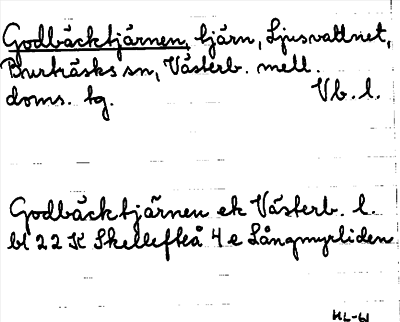 Godbäcktjärnen, tjärn, Ljusvattnet,
Burträsks sn, Västerb. mell.
doms. tg. Vb. l.
Godbäcktjärnen ek Västerb. l.
bl 22 K Skellefteå 4 e Långmyrliden
HL-W